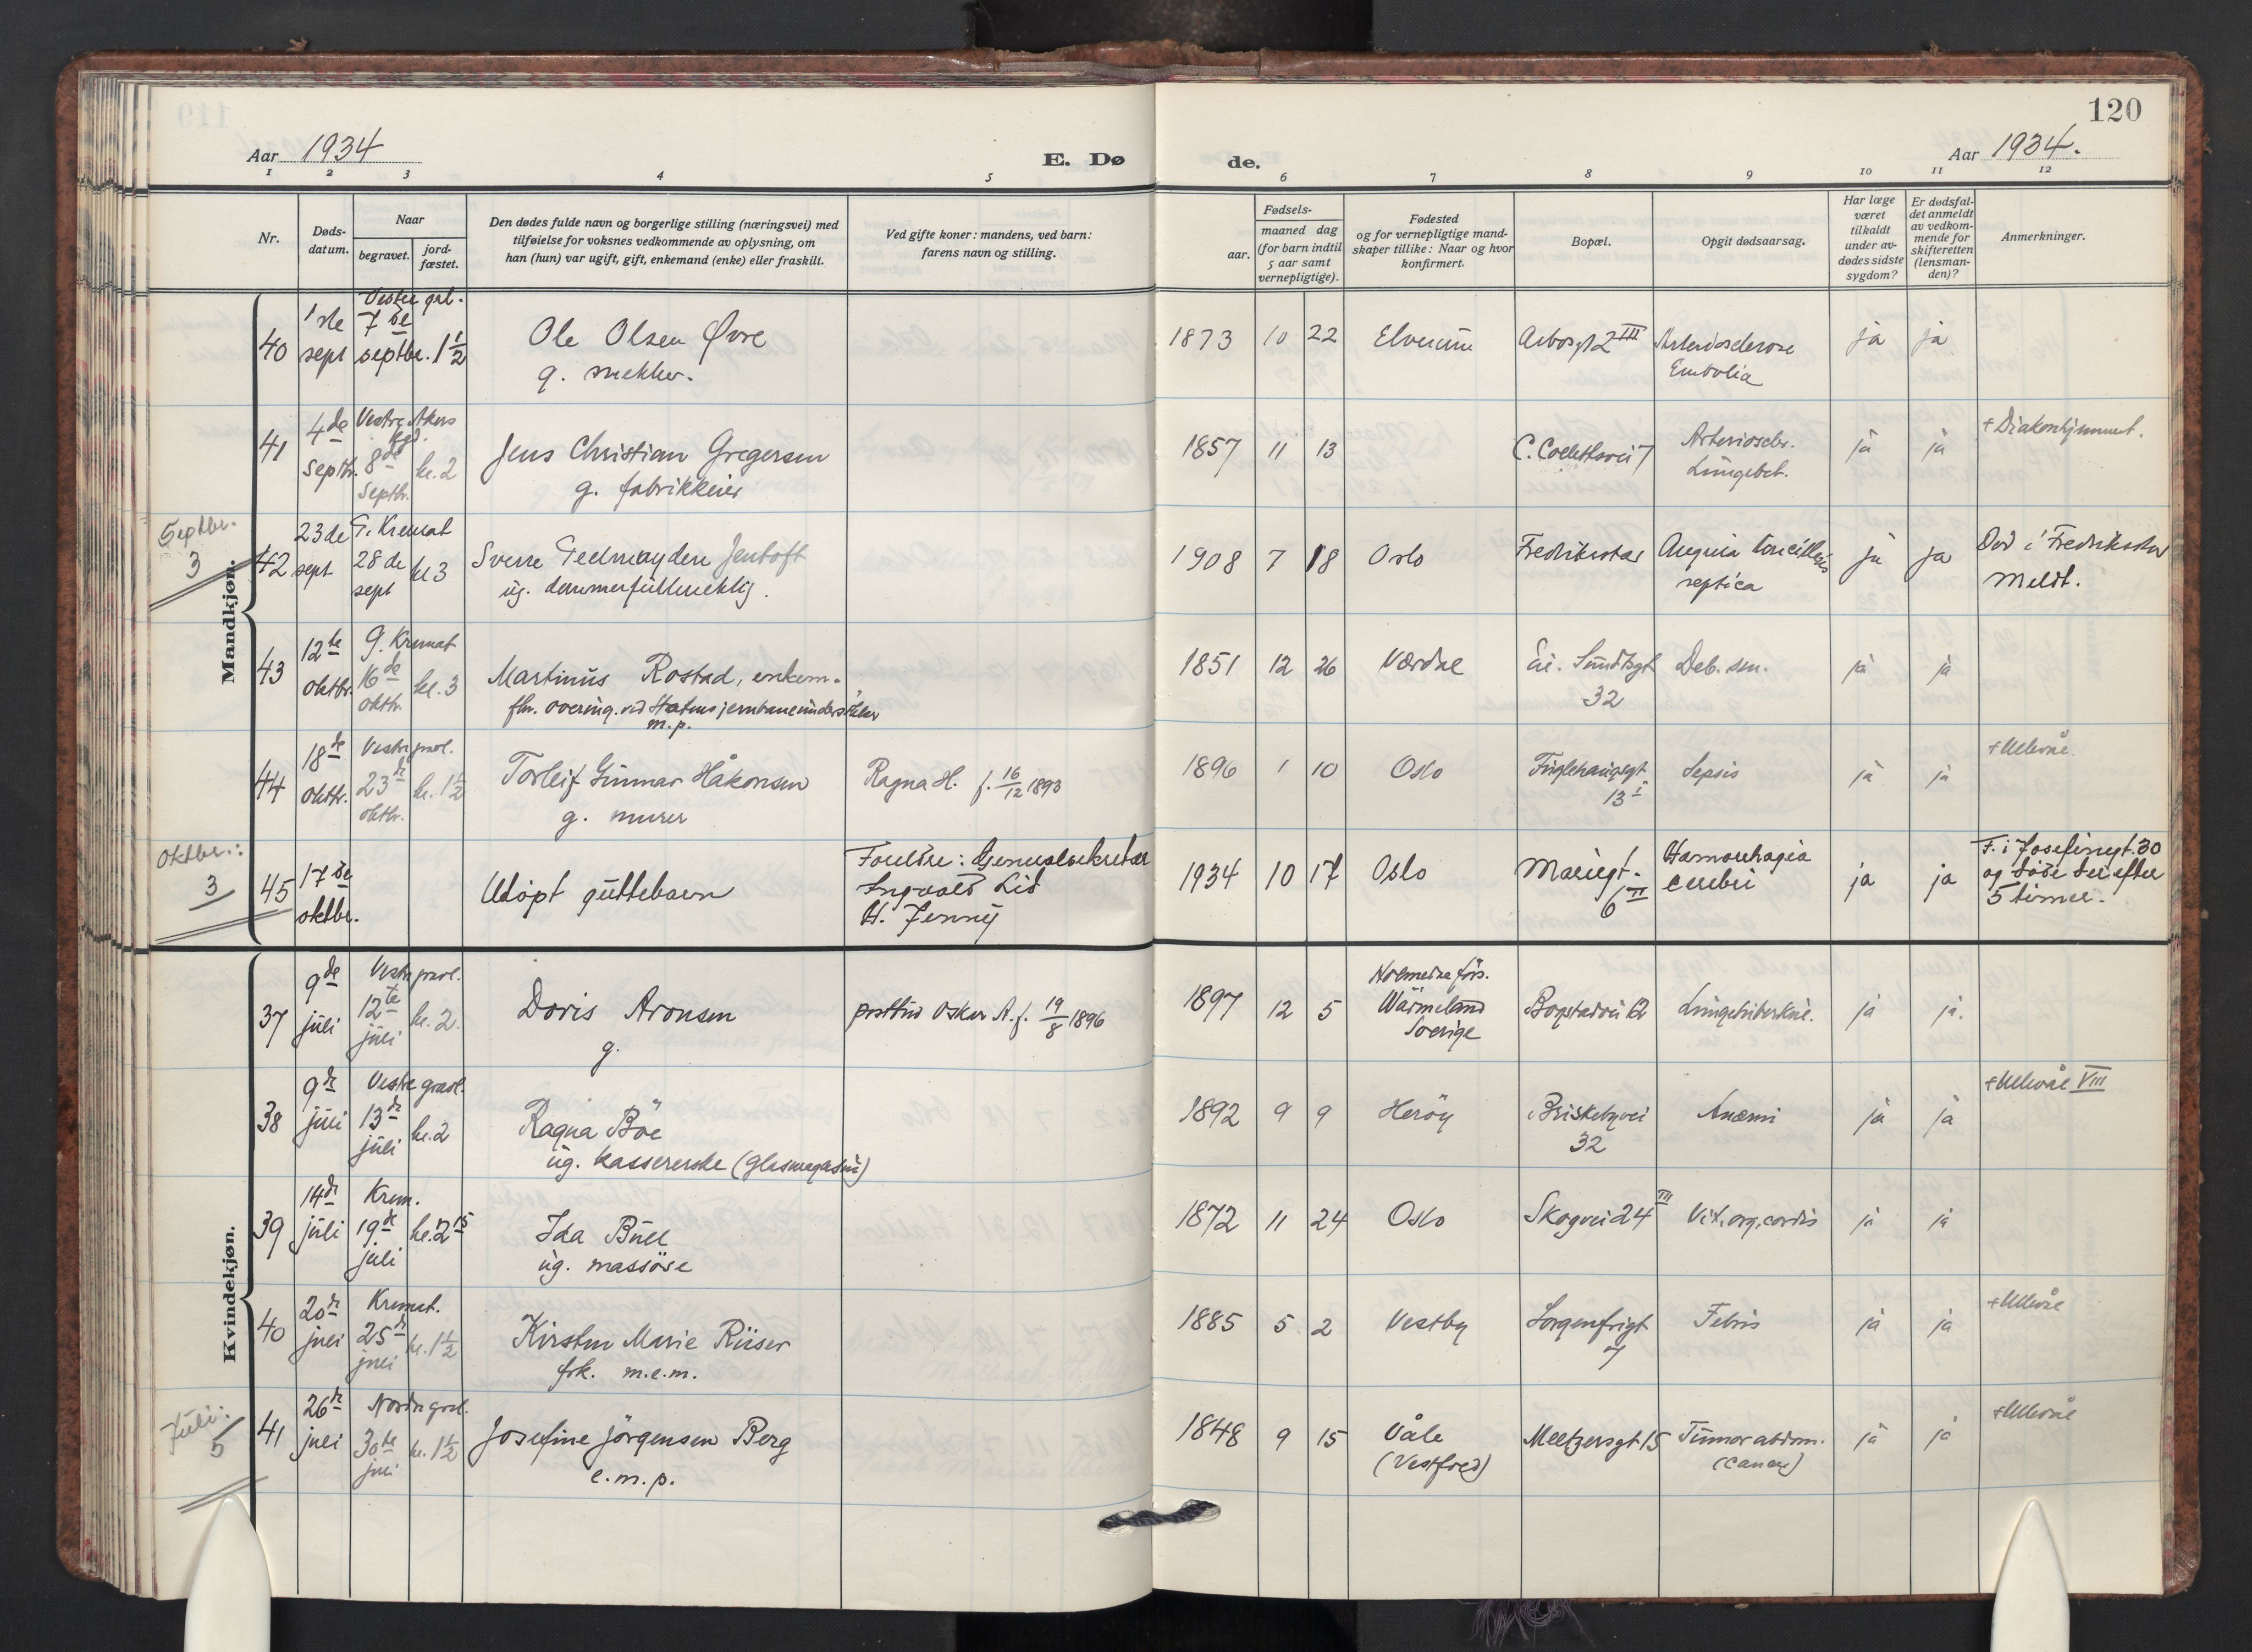 Aar 1934
E. Dø
1 2 3 4 5
Nr.
Døds-
datum.
Naar
begravet.
jord-
fæstet.
Den dødes fulde navn og borgerlige stilling (næringsvei) med
tilføielse for voksnes vedkommende av oplysning, om
han (hun) var ugift, gift, enkemand (enke) eller fraskilt.
Ved gifte koner: mandens, ved barn:
farens navn og stilling.
120
de.
Aar 1934.
6 7 8 9 10 11 12
Fødsels-
aar.
maaned dag
(for barn indtil
5 aar samt
vernepligtige).
Fødested
og for vernepligtige mand-
skaper tillike: Naar og hvor
konfirmert.
Bopæl.
Opgit dødsaarsag.
Har læge
været
tilkaldt
under av-
dødes sidste
sygdom?
Er dødsfal-
det anmeldt
av vedkom-
mende for
skifteretten
(lensman-
den)?
Anmerkninger.
Mandkjøn.
40 1ste sept 7de septbr. 1 1/2
Ole Olsen Øvre
g. snekker.
1873 10 22 Elverum Arbosgt 2 III Arteriosclerose
Embolia
ja ja
41 4de septbr. Vestre Akers kgd. 8de septbr. kl. 2
Jens Christian Gregersen
g. fabrikkeier
1857 11 13 C. Collettsvei 7 Arterioscler.
Lungebet.
ja ja + Diakonhjemmet.
Septbr.
3
42 23de sept G. Kremat 28de sept kl 3
Sverre Geelmuyden Jentoft
ug. dommerfullmektig.
1908 7 18 Oslo Fredrikstad Angina toncillaris
septica
ja ja Død i Fredrikstad
Meldt.
43 12te oktbr. G. Kremat 16de oktbr. kl. 3
Martinus Rostad, enkem.
fhv. overing. ved Statens jernbaneundersökelser
m.p.
1851 12 26 Værdal Ei. Sundtsgt
32
Deb. sen. ja ja
44 18de oktbr. Vestre gravl. 23de oktbr. kl. 1 1/2
Torleif Gunnar Håkonsen
g. murer
Ragna H. f. 16/12 1893
1896 1 10 Oslo Fuglehauggt
13 I
Sepsis ja ja + Ullevål.
Oktbr.:
3
45 17de oktbr.
Udöpt guttebarn
Foreldre:
Ingvald Lid
H. Jenny
1934 10 17 Oslo
6 II
Hæmorrhagia
cerebri
ja ja F. i Josefinegt. 30
og døde der efter
5 timer.
Kvindekjøn.
37 9de juli Vestre gravl. 12te juli kl. 2.
Doris Aronsen
g.
postbud Oskar A. f. 19/8 1896
1897 12 5
Wärmeland
Sverige
Bogstadvei 12 Lungetuberkul. ja ja.
38 9de juli Vestre gravl. 13de juli kl. 2
Ragna Böe
ug. kassererske (Glasmagasin)
1892 9 9 Heröy Briskebyvei
32
Anæmi ja ja + Ullevål VIII
39 14de juli Krem. 19de juli kl. 2 15
Ida Bull
ug. massöse
1872 11 24 Oslo Skogvei 24 III Vit. org. cordis ja ja
40 20de juli Kremat. 25de juli kl. 1 1/2
Kirsten Marie Riiser
frk. m.e.m.
1885 5 2 Vestby Sorgenfrigt
7
Febris ja ja + Ullevål
Juli:
5
41 26de juli Nordre gravl. 30te juli kl. 1 1/2
Josefine Jörgensen Berg
e.m.p.
1848 9 15 Våle
(Vestfold)
Meltzersgt 15 Tumor abdom.
(cancer)
ja ja + Ullevål